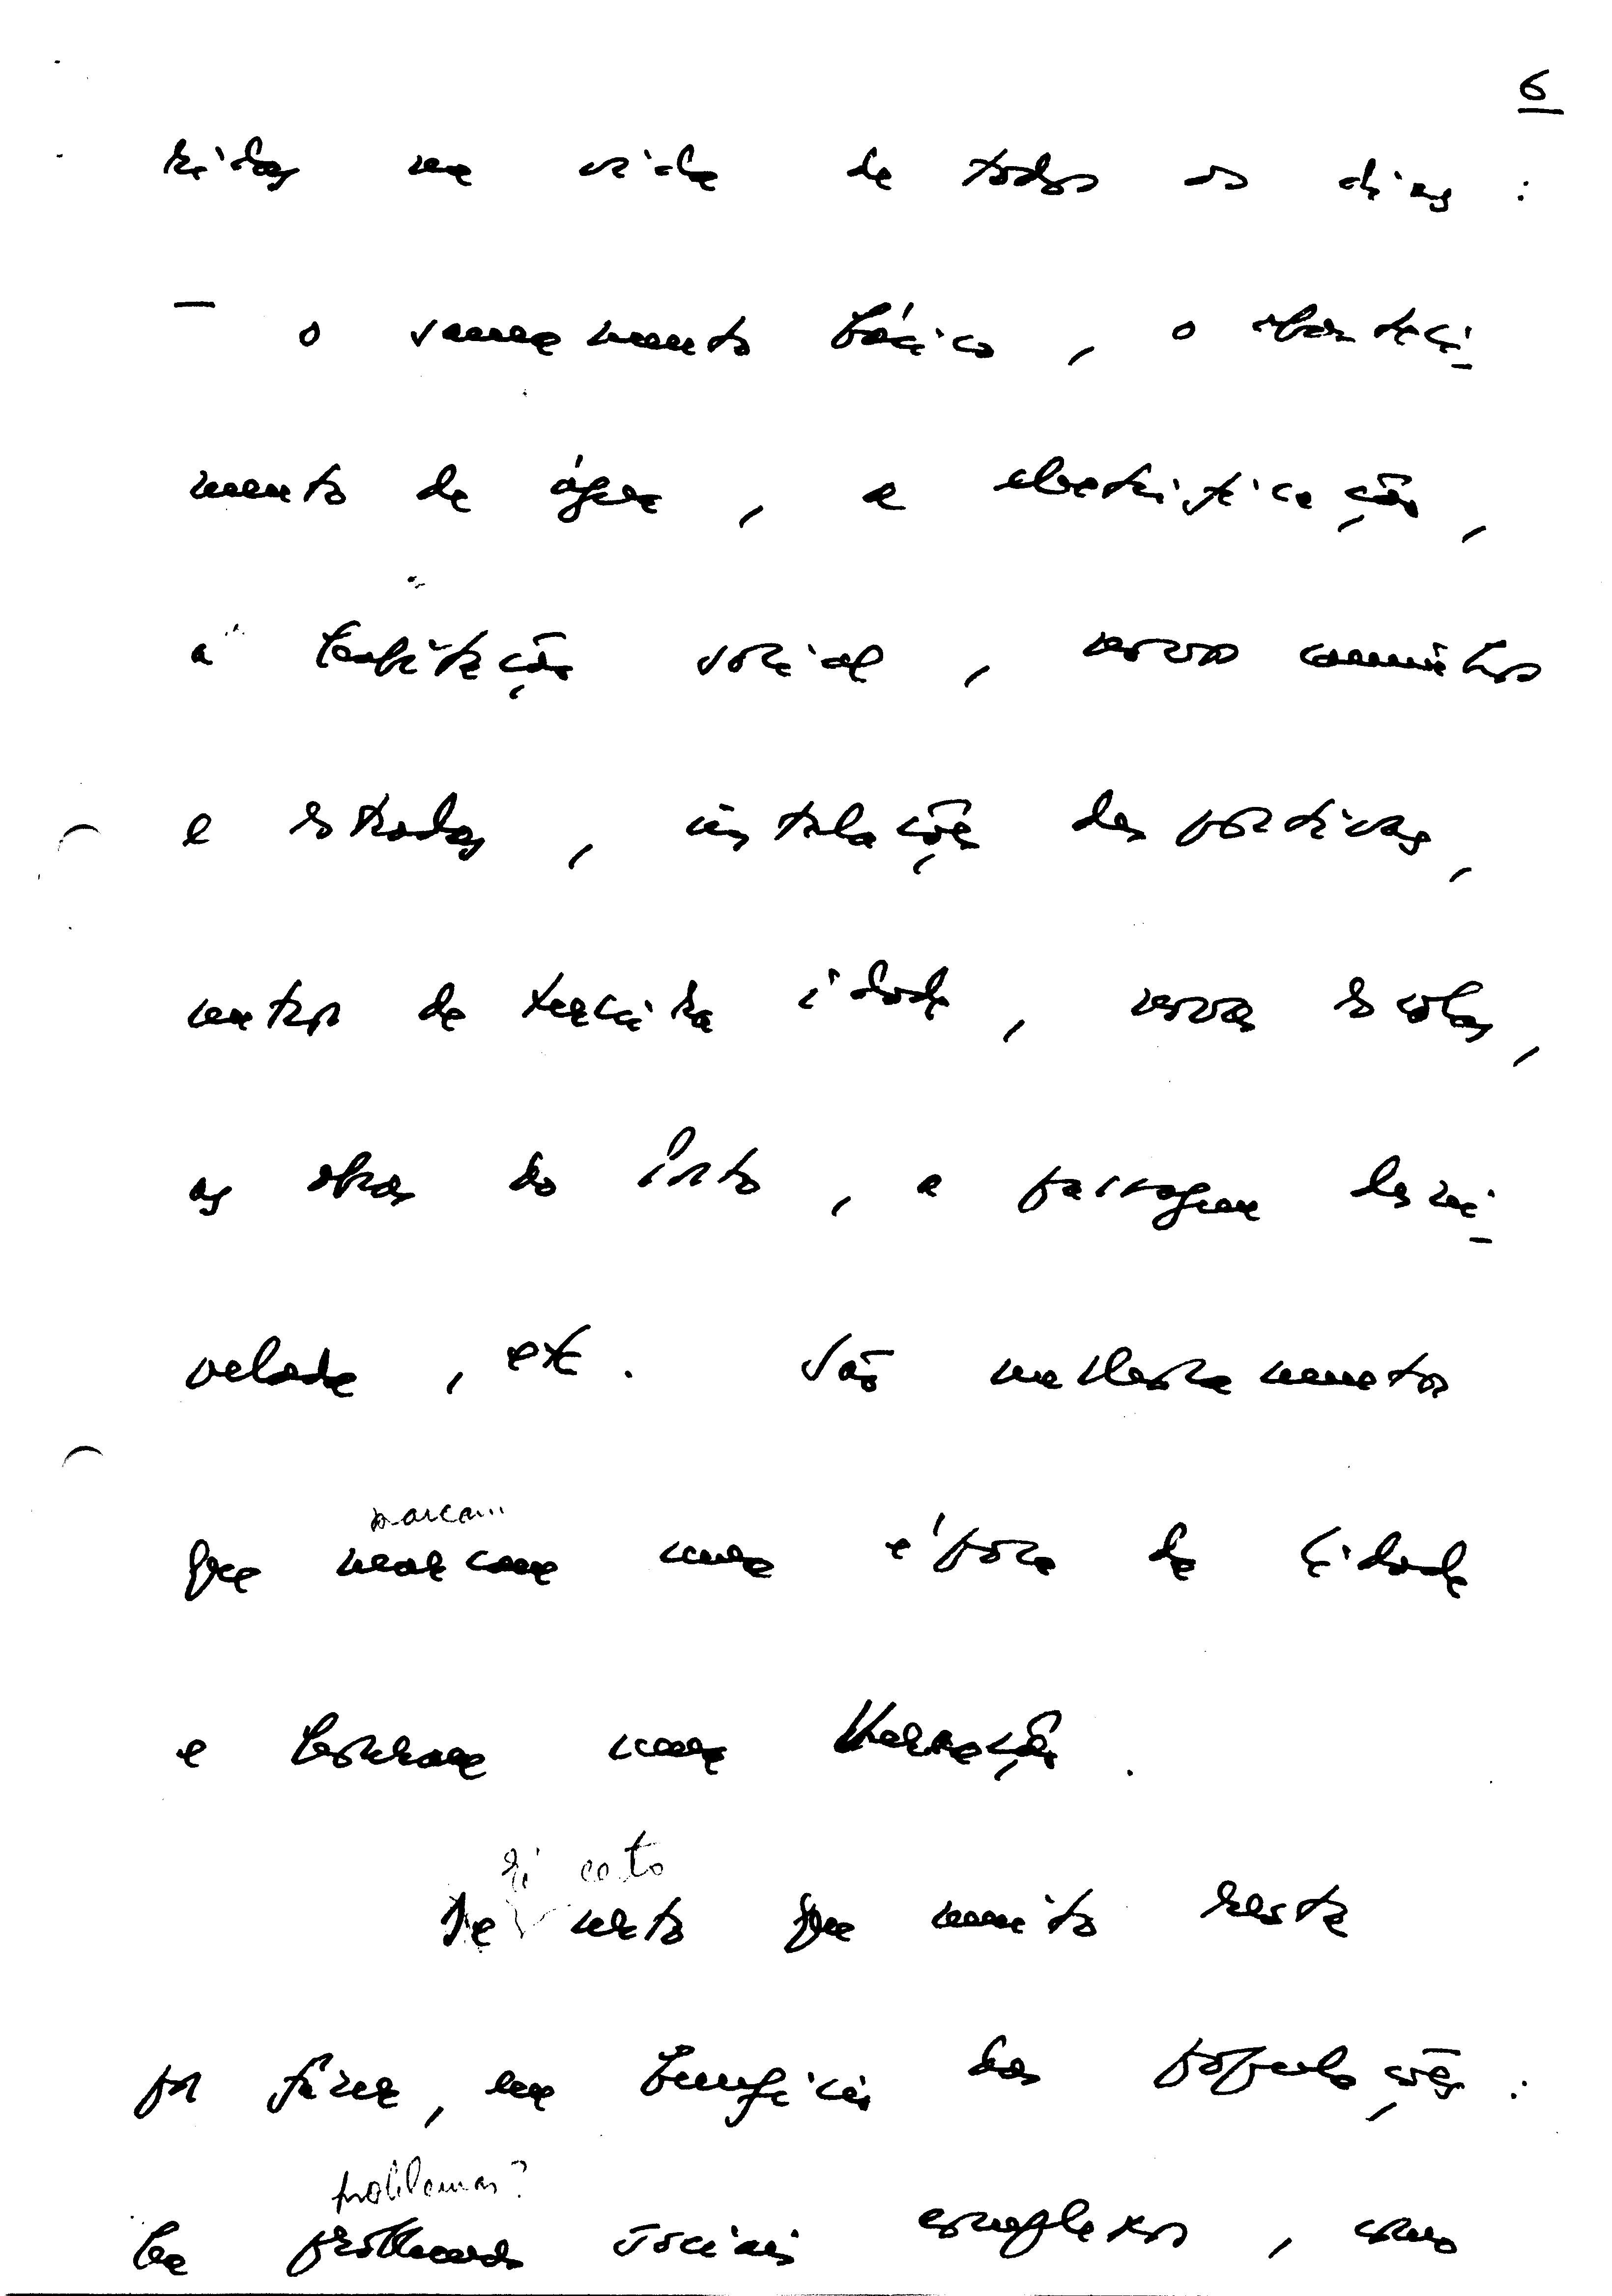 6
ridas na vida de todos os dias :
— o saneamento básico , o abasteci
mento de água , a electrificação ,
a habitação social , novos caminhos
e estradas , instalações desportivas ,
centros de terceira idade , novas escolas ,
as obras do Porto , a passagem desni
velada , etc . São melhoramentos
marcam
que marcam uma época da cidade
e honram uma Vereação .
É certo
É certo que muito resta
por fazer , em benefício das populações :
problemas?
há problemas sociais complexos , como